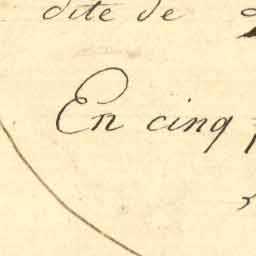 dite de
En cinq